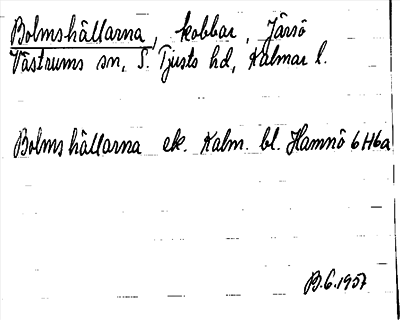 Bolmshällarna, kobbar, Järsö
Västrums sn, S. Tjusts hd, Kalmar l.
Bolmshällarna ek. Kalm. bl. Hamnö 6H6a
B.G. 1957